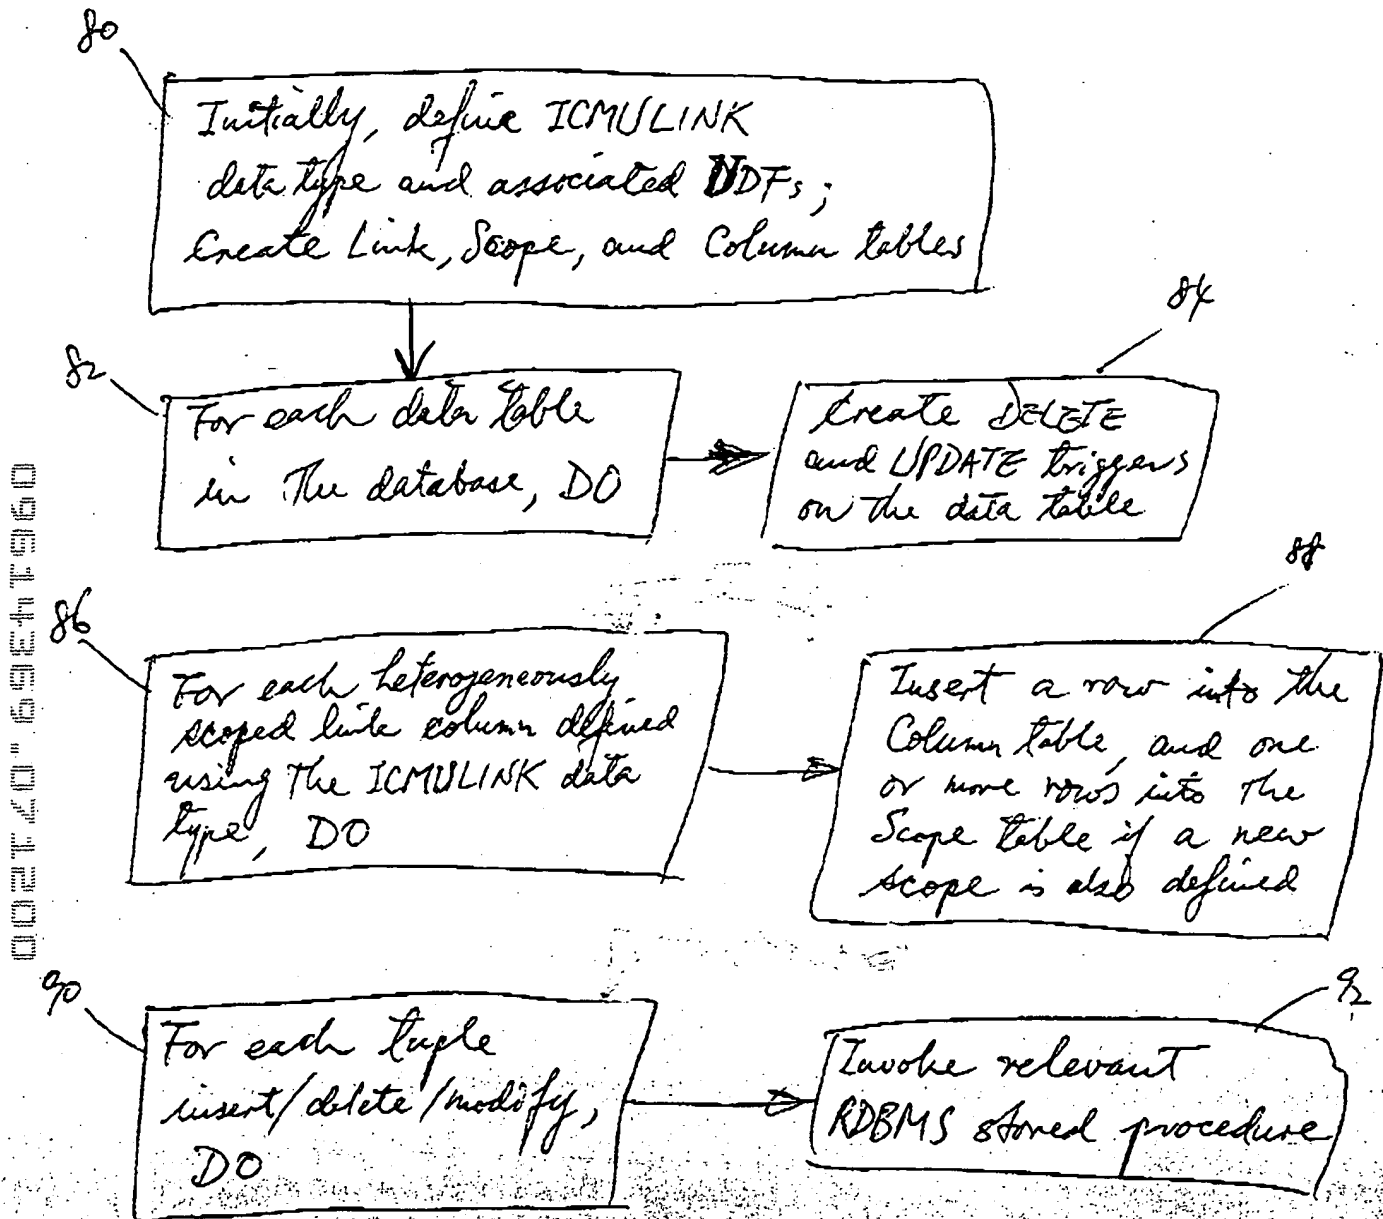 80
Initially, define ICMULINK
data type and associated UDFs;
Create Link, Scope, and Column tables
82
For each data table
in the database, DO
84
Create DELETE
and UPDATE triggers
on the data table
86
For each heterogeneously
scoped link column defined
using the ICMULINK data
type, DO
88
Insert a row into the
Column table, and one
or more rows into the
Scope table if a new
scope is also defined
90
For each tuple
insert/delete/modify,
DO
92
Invoke relevant
RDBMS stored procedure
09614369.071200